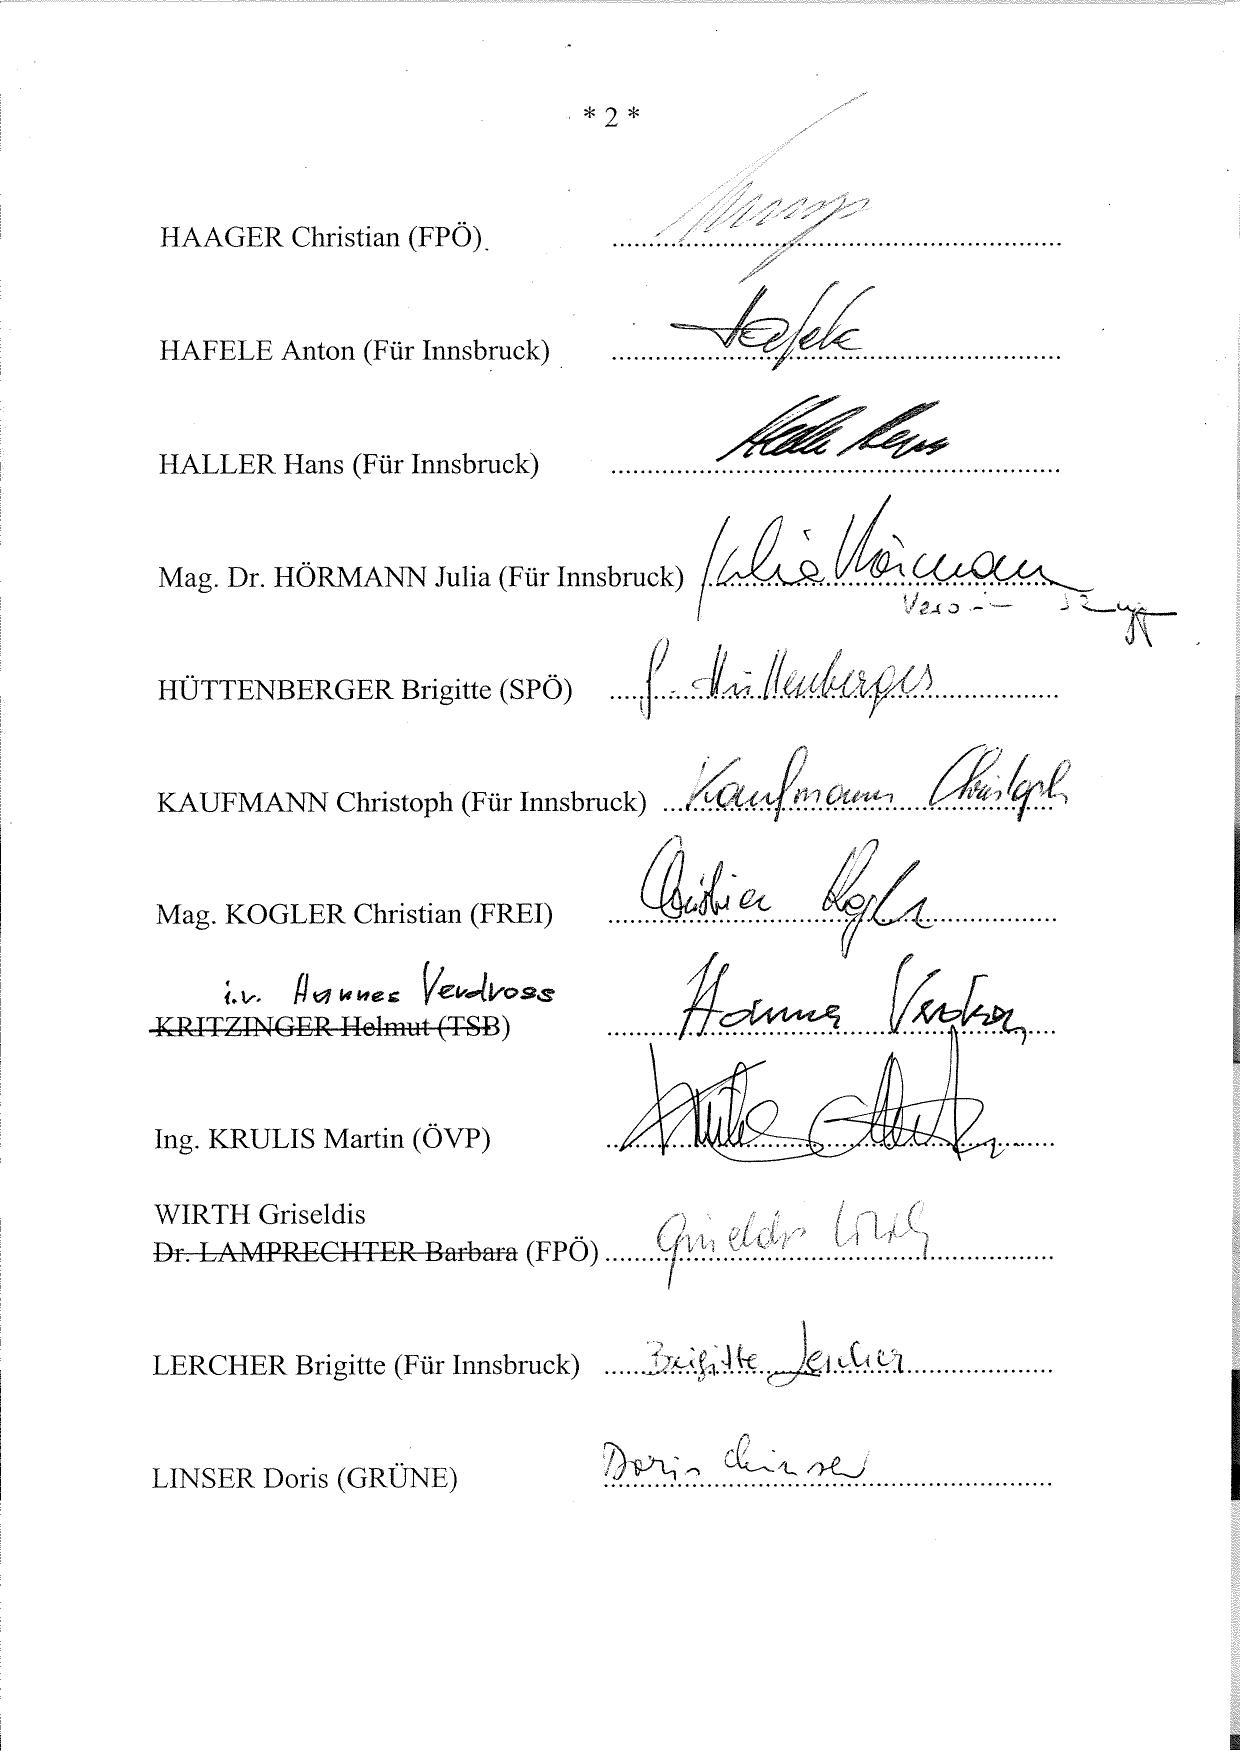 * 2 *
HAAGER Christian (FPÖ)
HAFELE Anton (Für Innsbruck) Hafele
HALLER Hans (Für Innsbruck) Haller Hans
Mag. Dr. HÖRMANN Julia (Für Innsbruck) Julia Hörmann
HÜTTENBERGER Brigitte (SPÖ) Hüttenberger
KAUFMANN Christoph (Für Innsbruck) Kaufmann Christoph
Mag. KOGLER Christian (FREI) Christian Kogler
i.v. Hannes Verdross
KRITZINGER Helmut (TSB) Hannes Verdross
Ing. KRULIS Martin (ÖVP)
WIRTH Griseldis
Dr. LAMPRECHTER Barbara (FPÖ) Griseldis Wirth
LERCHER Brigitte (Für Innsbruck) Brigitte Lercher
LINSER Doris (GRÜNE) Doris Linser